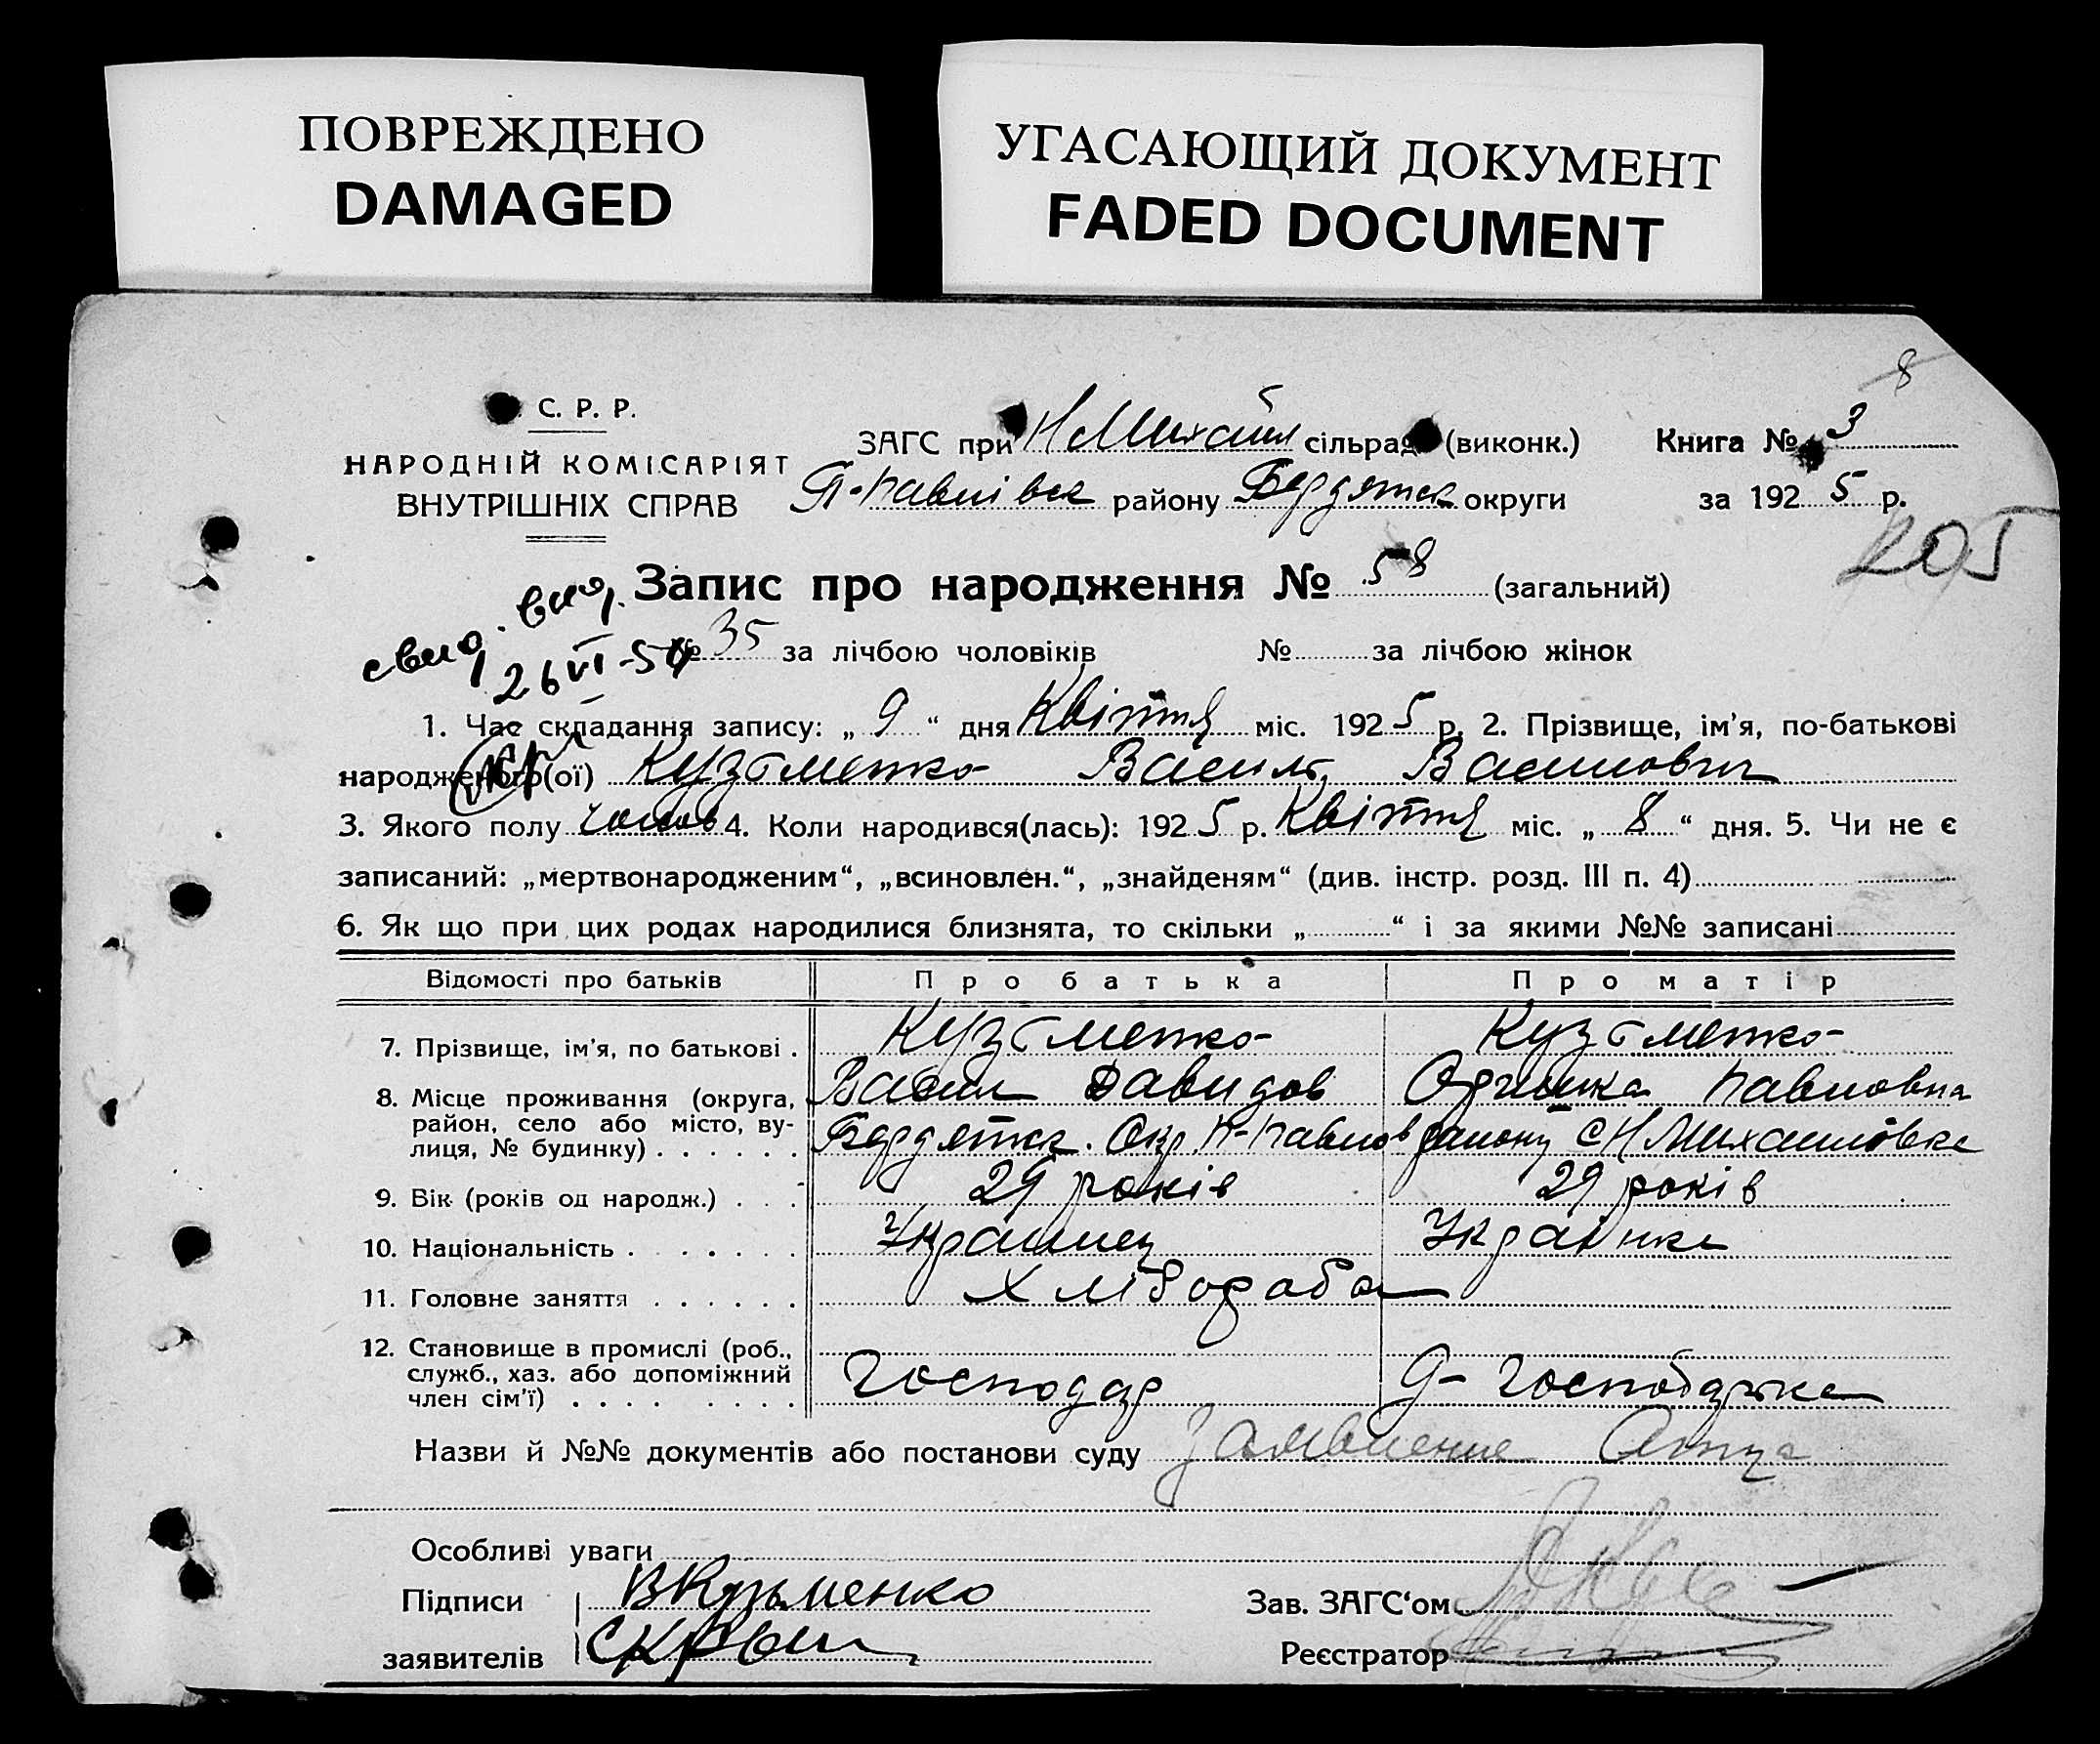 ПОВРЕЖДЕНО
DAMAGED
УГАСАЮЩИЙ ДОКУМЕНТ
FADED DOCUMENT
8
С. Р. Р.
НАРОДНІЙ КОМІСАРІЯТ
ВНУТРІШНІХ СПРАВ
ЗАГС при Н Михайл сільрад (виконк.)
П-павлівск району Бердянск округи
Книга № 3
за 1925 р.
205
Запис про народження № 58 (загальний)
свид. выд.
26 VI-54
№ 35 за лічбою чоловіків № за лічбою жінок
1. Час складання запису: „ 9 “ дня Квітня міс. 1925 р. 2. Прізвище, ім’я, по-батькові
народженого(ої) Кузьменко Василь Василович
3. Якого полу чолов 4. Коли народився(лась): 1925 р. Квітня міс. „ 8 “ дня. 5. Чи не є
записаний: „мертвонародженим“, „всиновлен.“, „знайденям“ (див. інстр. розд. III п. 4)
6. Як що при цих родах народилися близнята, то скільки „ “ і за якими №№ записані
Відомості про батьків Про батька Про матір
7. Прізвище, ім’я, по батькові . Кузьменко Кузьменко
Васил Давидов Оришка Павловна
8. Місце проживання (округа,
район, село або місто, ву-
лиця, № будинку) . . . . . . Бердянск. Окр П-павлов району с Н Михайловке
9. Вік (років од народж.) . . . 29 років 29 років
10. Національність . . . . . . . Украинец Українка
11. Головне заняття . . . . . . Хлібороба
12. Становище в промислі (роб.,
служб., хаз. або допоміжний
член сім’ї) . . . . . . . . Господар Д- господарка
Назви й №№ документів або постанови суду Заявление Отца
Особливі уваги
Підписи ВКузьменко
заявителів
Зав. ЗАГС‘ом
Реєстратор